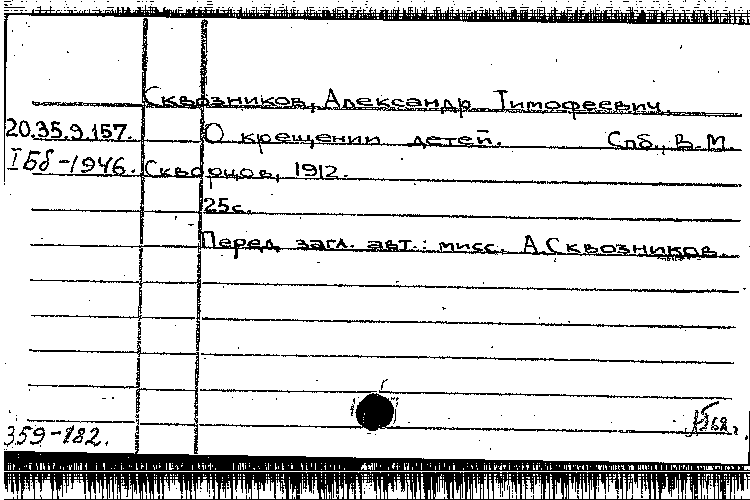 Сквозников, Александр Тимофеевич.
20.35.9.157. О крещении детей. Спб., В.М.
I Бб-1946. Скворцов, 1912.
25с.
Перед загл. авт.: мисс. А.Сквозников.
359-182.